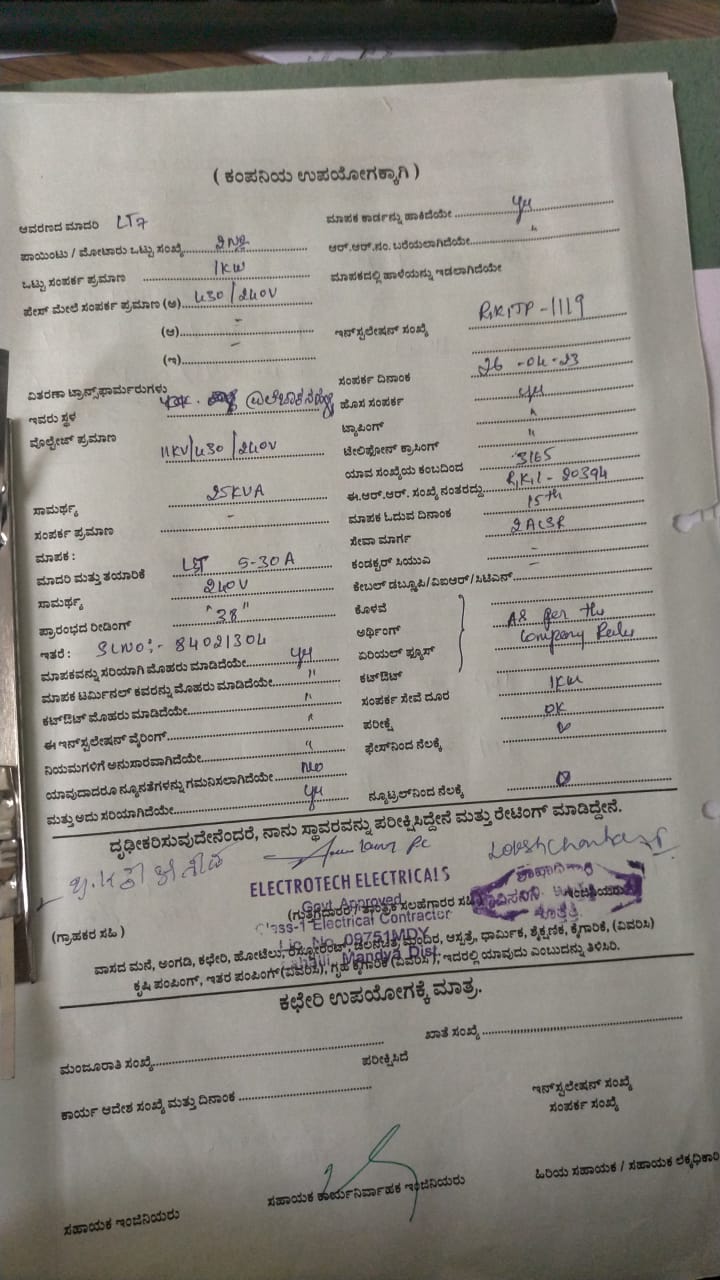 ( ಕಂಪನಿಯ ಉಪಯೋಗಕ್ಕಾಗಿ )
ಆವರಣದ ಮಾದರಿ LT7
ಮಾಪಕ ಕಾರ್ಡನ್ನು ಹಾಕಿದೆಯೇ
ಪಾಯಿಂಟು / ಮೋಟಾರು ಒಟ್ಟು ಸಂಖ್ಯೆ 2No
ಆರ್.ಆರ್.ನಂ. ಬರೆಯಲಾಗಿದೆಯೇ "
ಒಟ್ಟು ಸಂಪರ್ಕ ಪ್ರಮಾಣ 1KW
ಮಾಪಕದಲ್ಲಿ ಹಾಳೆಯನ್ನು ಇಡಲಾಗಿದೆಯೇ
ಪೇಸ್ ಮೇಲೆ ಸಂಪರ್ಕ ಪ್ರಮಾಣ (ಅ) 430/240V
(ಆ) -
ಇನ್‌ಸ್ಟಲೇಷನ್ ಸಂಖ್ಯೆ RKLTP-1119
(ಇ) -
ವಿತರಣಾ ಟ್ರಾನ್ಸ್‌ಫಾರ್ಮರುಗಳು
ಸಂಪರ್ಕ ದಿನಾಂಕ 26-04-23
ಇವರು ಸ್ಥಳ
ಹೊಸ ಸಂಪರ್ಕ
ಟ್ಯಾಪಿಂಗ್ "
ವೊಲ್ಟೇಜ್ ಪ್ರಮಾಣ 11KV/430/240V
ಟೆಲಿಫೋನ್ ಕ್ರಾಸಿಂಗ್ "
ಯಾವ ಸಂಖ್ಯೆಯ ಕಂಬದಿಂದ 3165
ಸಾಮರ್ಥ್ಯ 25KVA
ಈ.ಆರ್.ಆರ್. ಸಂಖ್ಯೆ ನಂತರದ್ದು RKL-20394
ಸಂಪರ್ಕ ಪ್ರಮಾಣ -
ಮಾಪಕ ಓದುವ ದಿನಾಂಕ 15th
ಮಾಪಕ :
ಸೇವಾ ಮಾರ್ಗ 2ACSR
ಮಾದರಿ ಮತ್ತು ತಯಾರಿಕೆ L&T 5-30A
ಕಂಡಕ್ಟರ್ ಸಿಯುಎ -
ಸಾಮರ್ಥ್ಯ 240V
ಕೇಬಲ್ ಡಬ್ಲ್ಯೂಪಿ/ವಿಐಆರ್/ಸಿಟಿಎಸ್ -
ಪ್ರಾರಂಭದ ರೀಡಿಂಗ್ "38"
ಕೊಳವೆ
ಇತರೆ : SLNO:- 84021304
ಅರ್ಥಿಂಗ್ As per the
ಮಾಪಕವನ್ನು ಸರಿಯಾಗಿ ಮೊಹರು ಮಾಡಿದೆಯೇ
ಏರಿಯಲ್ ಫ್ಯೂಸ್ Company Rules
ಮಾಪಕ ಟರ್ಮಿನಲ್ ಕವರನ್ನು ಮೊಹರು ಮಾಡಿದೆಯೇ "
ಕಟ್ಔಟ್
ಕಟ್ಔಟ್ ಮೊಹರು ಮಾಡಿದೆಯೇ "
ಸಂಪರ್ಕ ಸೇವೆ ದೂರ
ಈ ಇನ್‌ಸ್ಟಲೇಷನ್ ವೈರಿಂಗ್ "
ಪರೀಕ್ಷೆ OK
ನಿಯಮಗಳಿಗೆ ಅನುಸಾರವಾಗಿದೆಯೇ "
ಫೇಸ್‌ನಿಂದ ನೆಲಕ್ಕೆ
ಯಾವುದಾದರೂ ನ್ಯೂನತೆಗಳನ್ನು ಗಮನಿಸಲಾಗಿದೆಯೇ No
ಮತ್ತು ಅದು ಸರಿಯಾಗಿದೆಯೇ
ನ್ಯೂಟ್ರಲ್‌ನಿಂದ ನೆಲಕ್ಕೆ
ದೃಢೀಕರಿಸುವುದೇನೆಂದರೆ, ನಾನು ಸ್ಥಾವರವನ್ನು ಪರೀಕ್ಷಿಸಿದ್ದೇನೆ ಮತ್ತು ರೇಟಿಂಗ್ ಮಾಡಿದ್ದೇನೆ.
ELECTROTECH ELECTRICALS
Govt Approved
Class-1 Electrical Contractor
Lic. No. 09751MDY
Mandya Dist
(ಗ್ರಾಹಕರ ಸಹಿ)
(ಗುತ್ತಿಗೆದಾರರ / ತಾಂತ್ರಿಕ ಸಲಹೆಗಾರರ ಸಹಿ)
ವಾಸದ ಮನೆ, ಅಂಗಡಿ, ಕಛೇರಿ, ಹೋಟೆಲು, ರೆಸ್ಟೋರೆಂಟ್, ಚಲನಚಿತ್ರ ಮಂದಿರ, ಆಸ್ಪತ್ರೆ, ಧಾರ್ಮಿಕ, ಶೈಕ್ಷಣಿಕ, ಕೈಗಾರಿಕೆ, (ವಿವರಿಸಿ)
ಕೃಷಿ ಪಂಪಿಂಗ್, ಇತರ ಪಂಪಿಂಗ್(ವಿವರಿಸಿ), ಗೃಹ ಕೈಗಾರಿಕೆ (ವಿವರಿಸಿ), ಇದರಲ್ಲಿ ಯಾವುದು ಎಂಬುದನ್ನು ತಿಳಿಸಿರಿ.
ಕಛೇರಿ ಉಪಯೋಗಕ್ಕೆ ಮಾತ್ರ.
ಮಂಜೂರಾತಿ ಸಂಖ್ಯೆ
ಖಾತೆ ಸಂಖ್ಯೆ
ಪರೀಕ್ಷಿಸಿದೆ
ಕಾರ್ಯ ಆದೇಶ ಸಂಖ್ಯೆ ಮತ್ತು ದಿನಾಂಕ
ಇನ್‌ಸ್ಟಲೇಷನ್ ಸಂಖ್ಯೆ
ಸಂಪರ್ಕ ಸಂಖ್ಯೆ
ಸಹಾಯಕ ಇಂಜಿನಿಯರು
ಸಹಾಯಕ ಕಾರ್ಯನಿರ್ವಾಹಕ ಇಂಜಿನಿಯರು
ಹಿರಿಯ ಸಹಾಯಕ / ಸಹಾಯಕ ಲೆಕ್ಕಧಿಕಾರಿ